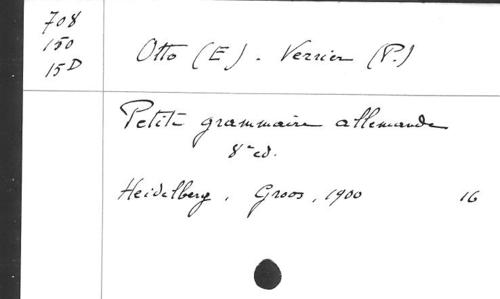 708
150
15D
Otto (E). Verrier (P.)
Petite grammaire allemande
8e ed.
Heidelberg, Groos, 1900 16